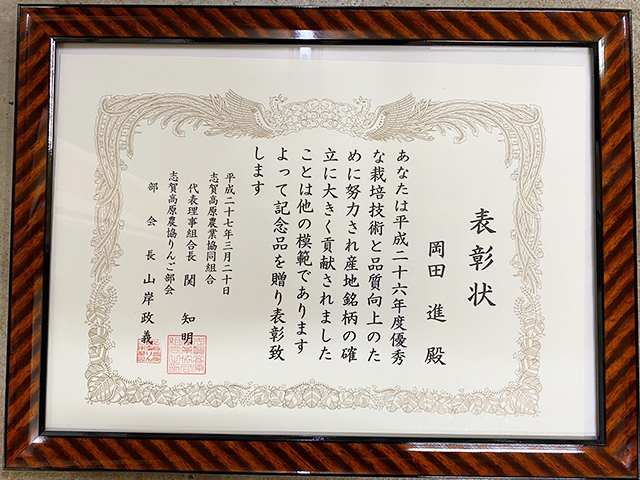 表彰状
岡田 進 殿
あなたは平成二十六年度優秀
な栽培技術と品質向上のた
めに努力され産地銘柄の確
立に大きく貢献されました
ことは他の模範であります
よって記念品を贈り表彰致
します
平成二十七年三月二十日
志賀高原農業協同組合
代表理事組合長 関 知明
志賀高原農協りんご部会
部会長 山岸政義